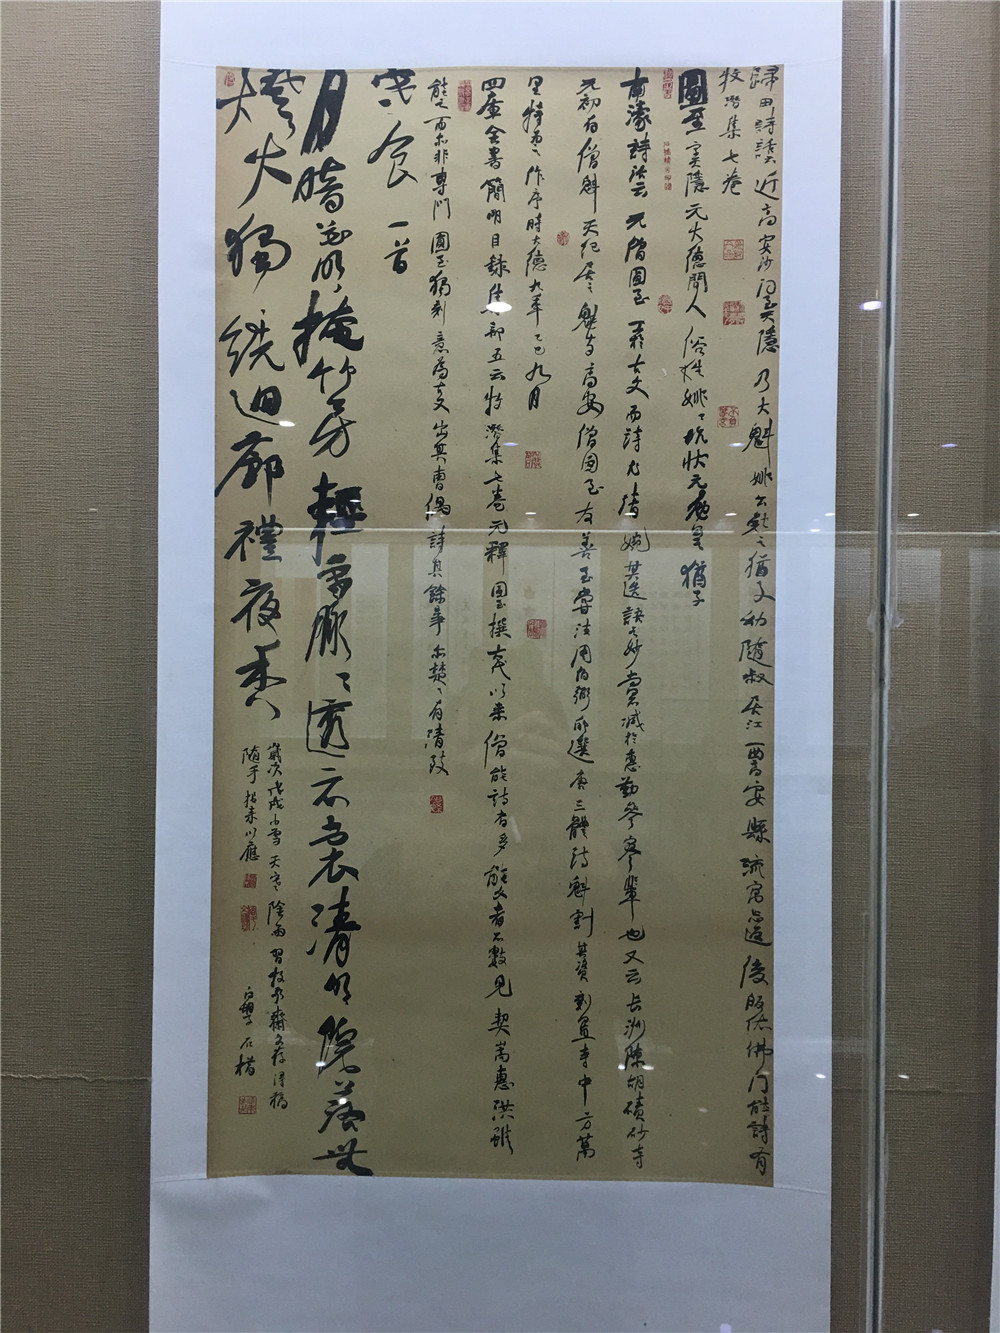 歸田詩話云近高安沙門至天隱乃大魁姚公勉之猶子幼隨叔居江西高安縣流寓 後皈依佛門能詩有
牧潛集七卷
圓至 字天隱元大德間人俗姓姚姚狀元勉是猶子
南濠詩話云元僧圓至工於古文而詩尤清婉其造語之妙當不減於惠勤參寥輩也又云長洲陳湖磧砂寺
元初有僧魁天紀居之魁與高安僧圓至友善至嘗注周伯弼所選唐三體詩魁割其資刻置寺中方萬
里特為之作序時大德九年乙巳九月
四庫全書簡明目錄集部五云牧潛集七卷元釋圓至撰 以來僧能詩者多能文者不數見契嵩惠洪雖
能之而亦非專門圓至獨刻意為文出其曹偶詩其餘事亦楚楚有清致
寒食一首
月暗花明掩竹房輕寒脈脈透衣裳清明院落無
燈火獨繞迴廊禮夜香
歲次戊戌小雪天寒陰雨習 齋 得稿
隨手拈來以應